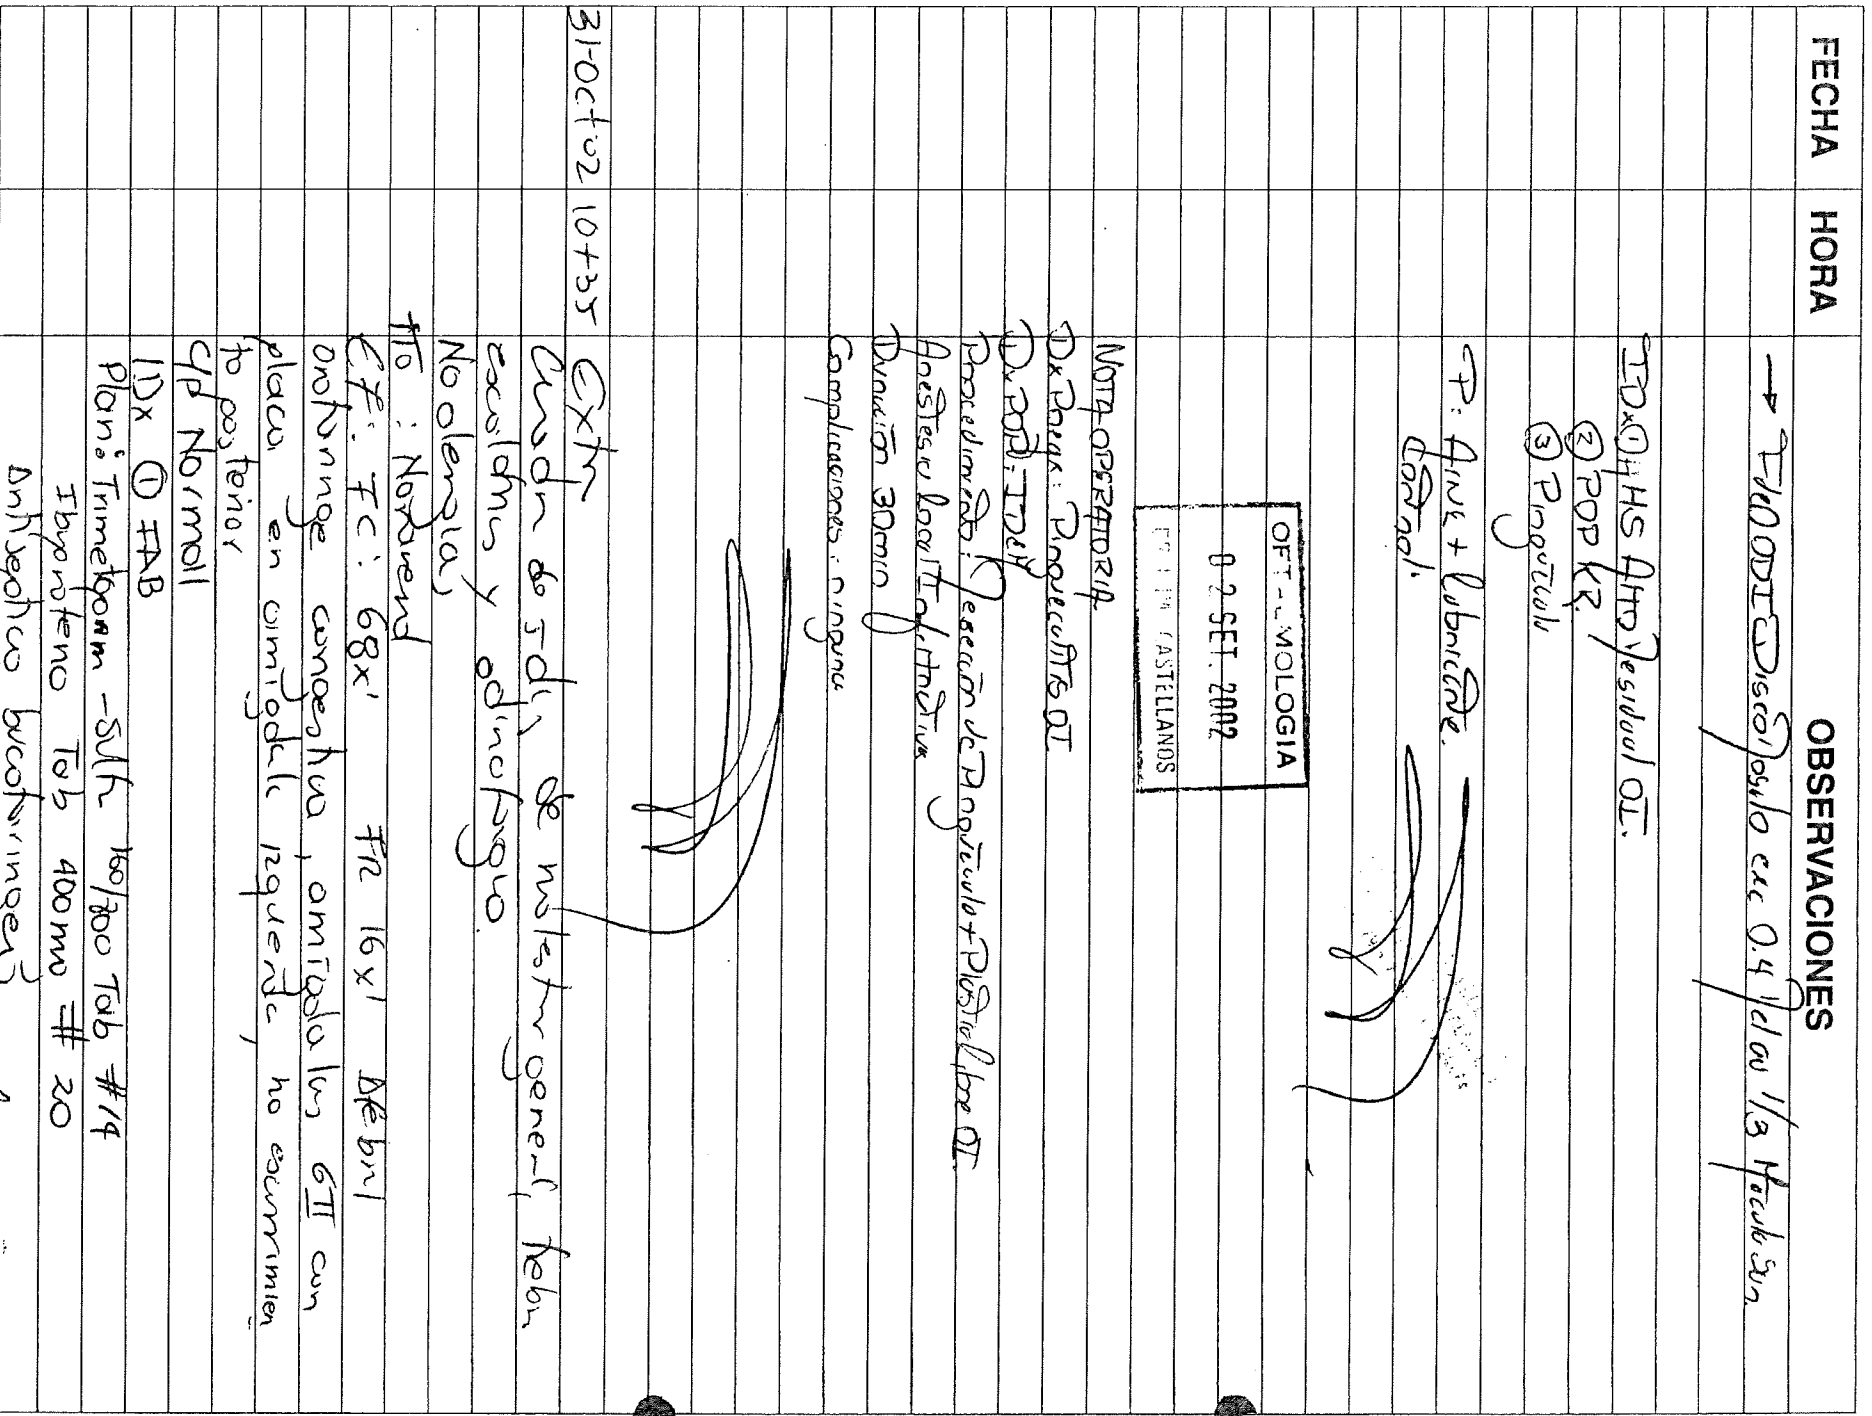 FECHA HORA OBSERVACIONES
→ FdeO ODI Disco rosado exc 0.4 Macula Sun.
IDx ① HHS Alto residual OI.
② POP KR
③ Pinguicula
P: AINE + Lubricante.
Control.
OFT MOLOGIA
02 SET. 2002
CASTELLANOS
NOTA OPERATORIA
Dx Preqx: Pingueculitis OI
Dx POP: IDem
Procedimiento: Resección de Pinguicula + Plastia libre OI.
Anestesia local
Duración 30min
Complicaciones: ninguna
31-Oct-02 10+35 Extn
Cuadro de 5 di, de malestar general, fiebre
escalofrios y odinofagia.
No alergia,
TTo : Noraver
EF: FC: 68x' FR 16x' Afebril
Orofaringe congestiva, amigdalas GII con
placa en amigdala izquierda, no escurrimien
to posterior
C/P Normal
IDx ① FAB
Plan: Trimetoprim - Sulfa 160/800 Tab #14
Ibuprofeno Tab 400mg # 20
Antiseptico bucofaringeo